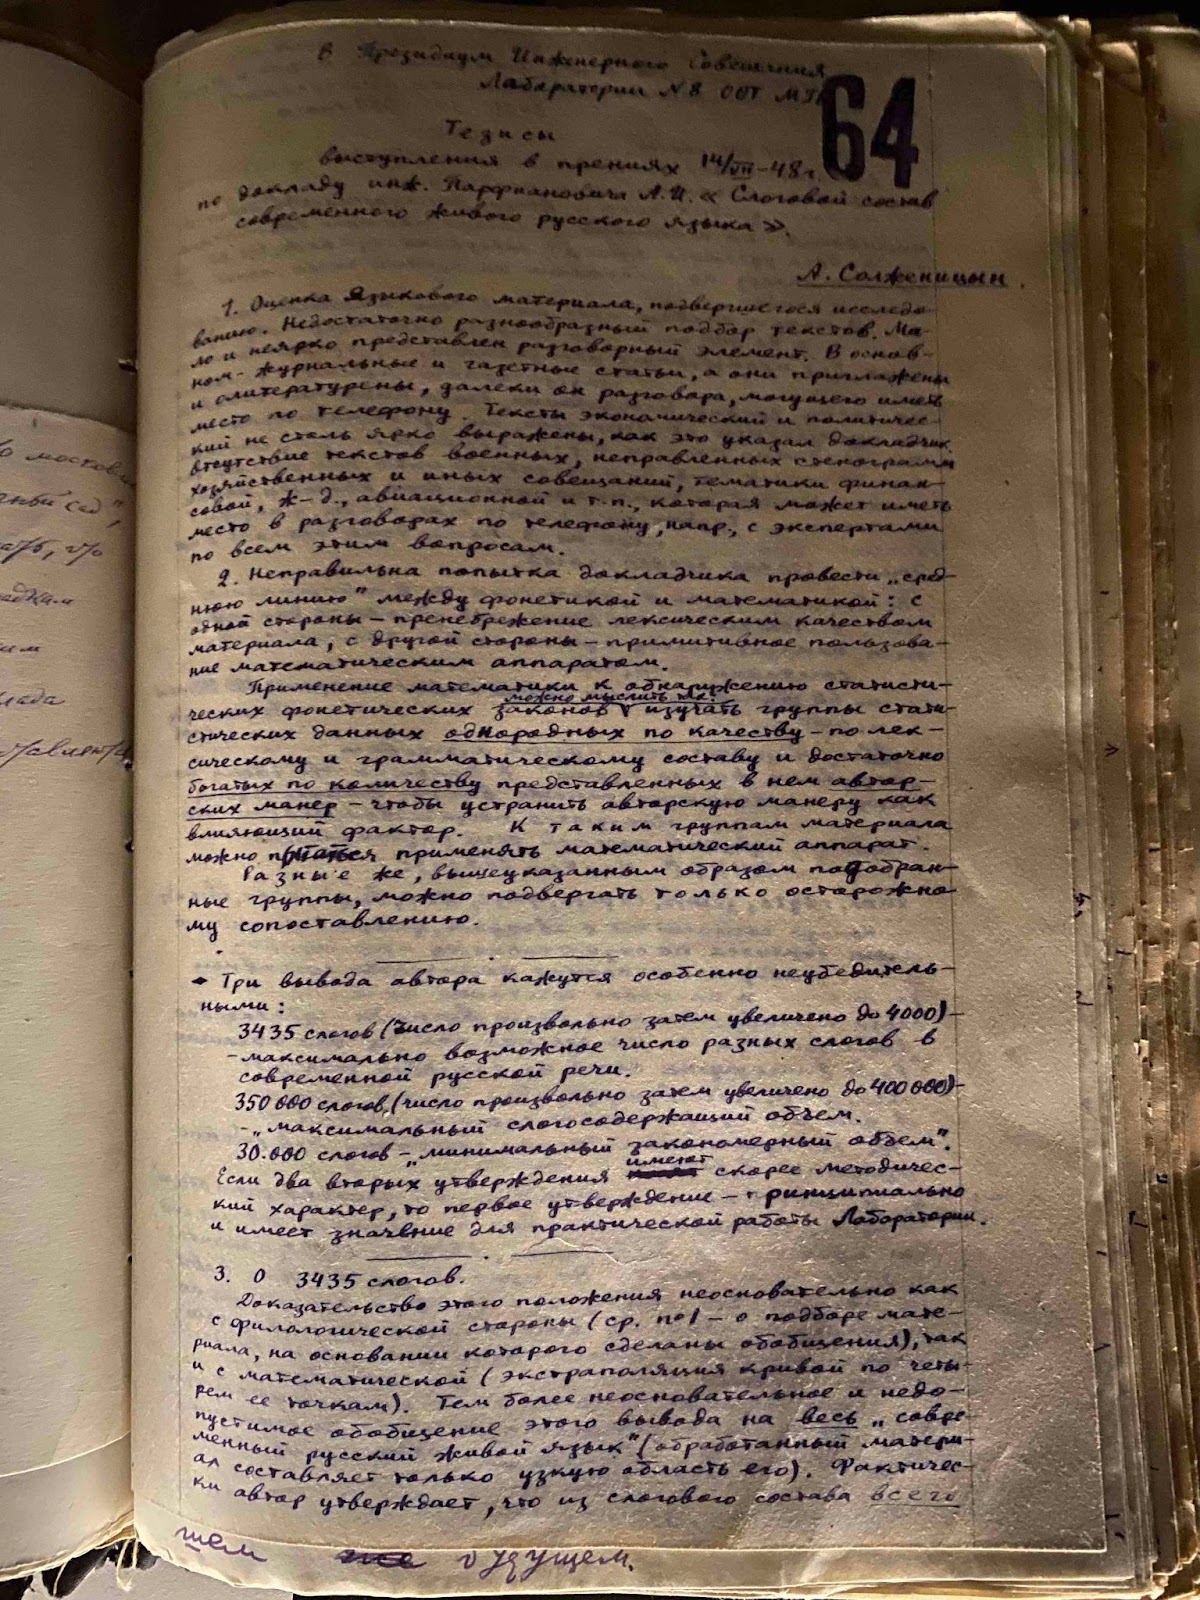 В Президиум Инженерного Совещания
Лаборатории N 8 ООТ МГБ
64
Тезисы
выступления в прениях 14/VII-48 г.
по докладу инж. Парфиановича А.И. « Слоговой состав
современного живого русского языка ».
А. Солженицын.
1. Оценка языкового материала, подвергшегося исследо-
ванию. Недостаточно разнообразный подбор текстов. Ма-
ло и неярко представлен разговорный элемент. В основ-
ном - журнальные и газетные статьи, а они приглажены
и олитературены, далеки он разговора, могущего иметь
место по телефону. Тексты экономический и политичес-
кий не столь ярко выражены, как это указал докладчик
Отсутствие текстов военных, неправленных стенограмм
хозяйственных и иных совещаний, тематики финан-
совой, ж-д., авиационной и т.п., которая может иметь
место в разговорах по телефону, напр., с экспертами
по всем этим вопросам.
2. Неправильна попытка докладчика провести „сред-
нюю линию" между фонетикой и математикой: с
одной стороны - пренебрежение лексическим качеством
материала, с другой стороны - примитивное пользова-
ние математическим аппаратом.
Применение математики к обнаружению статисти-
можно мыслить так:
ческих фонетических законов изучать группы стати-
стических данных однородных по качеству - по лек-
сическому и грамматическому составу и достаточно
богатых по количеству представленных в нем автор-
ских манер - чтобы устранить авторскую манеру как
влияющий фактор. К таким группам материала
можно пытаться применять математический аппарат.
Разные же, вышеуказанным образом подобран-
ные группы, можно подвергать только осторожно-
му сопоставлению.
Три вывода автора кажутся особенно неубедитель-
ными:
3435 слогов (число произвольно затем увеличено до 4000) -
- максимально возможное число разных слогов в
современной русской речи.
350 000 слогов, (число произвольно затем увеличено до 400 000) -
- „максимальный слогосодержащий объем.
30.000 слогов - „минимальный закономерный объем".
имеют
Если два вторых утверждения скорее методичес-
кий характер, то первое утверждение - принципиально
и имеет значение для практической работы Лаборатории.
3. О 3435 слогов.
Доказательство этого положения неосновательно как
с филологической стороны (ср. по 1 - о подборе мате-
риала, на основании которого сделаны обобщения), так
и с математической (экстраполяция кривой по четы-
рем ее точкам). Тем более неосновательное и недо-
пустимое обобщение этого вывода на весь „совре-
менный русский живой язык" (обработанный матери-
ал составляет только узкую область его). Фактичес-
ки автор утверждает, что из слогового состава всего
шем будущем.